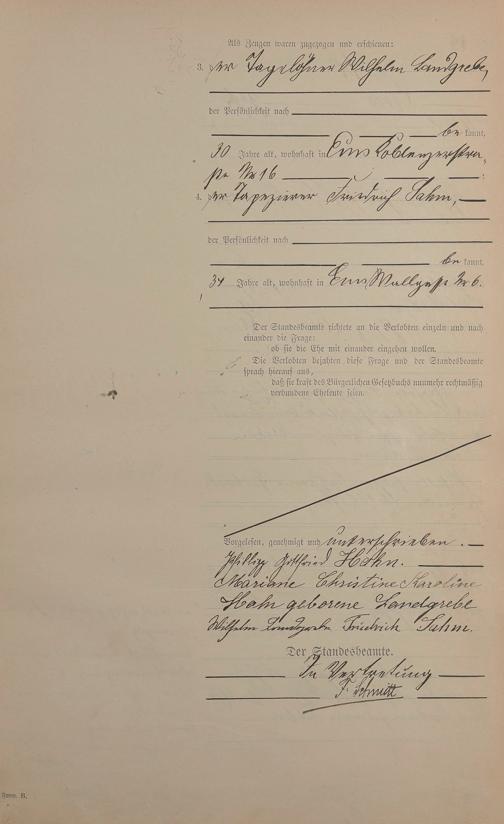 Als Zeugen waren zugezogen und erschienen:
3. der Tagelöhner Wilhelm Landgrebe,
der Persönlichkeit nach
be kannt,
30 Jahre alt, wohnhaft in Ems Coblenzerstra-
ße Nr 16
4. der Tapezierer Friedrich Sahm,
der Persönlichkeit nach
be kannt,
34 Jahre alt, wohnhaft in Ems, Wallgasse Nr 6.
Der Standesbeamte richtete an die Verlobten einzeln und nach
einander die Frage:
ob sie die Ehe mit einander eingehen wollen.
Die Verlobten bejahten diese Frage und der Standesbeamte
sprach hierauf aus,
daß sie kraft des Bürgerlichen Gesetzbuchs nunmehr rechtmäßig
verbundene Eheleute seien.
Vorgelesen, genehmigt und unterschrieben.
Philipp Gottfried Hahn.
Mariane Christine Karoline
Hahn geborene Landgrebe
Wilhelm Landgrebe Friedrich Sahm.
Der Standesbeamte.
In Vertretung
F. Schmitt
Form. B.